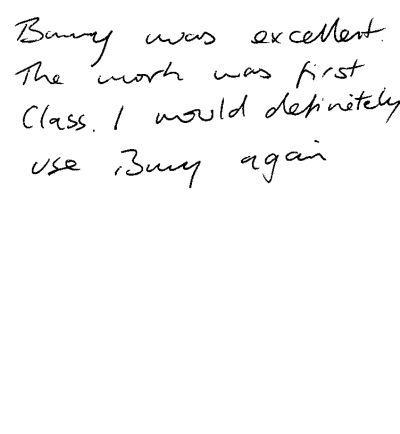 Barry was excellent.
The work was first
Class. I would definitely
use Barry again